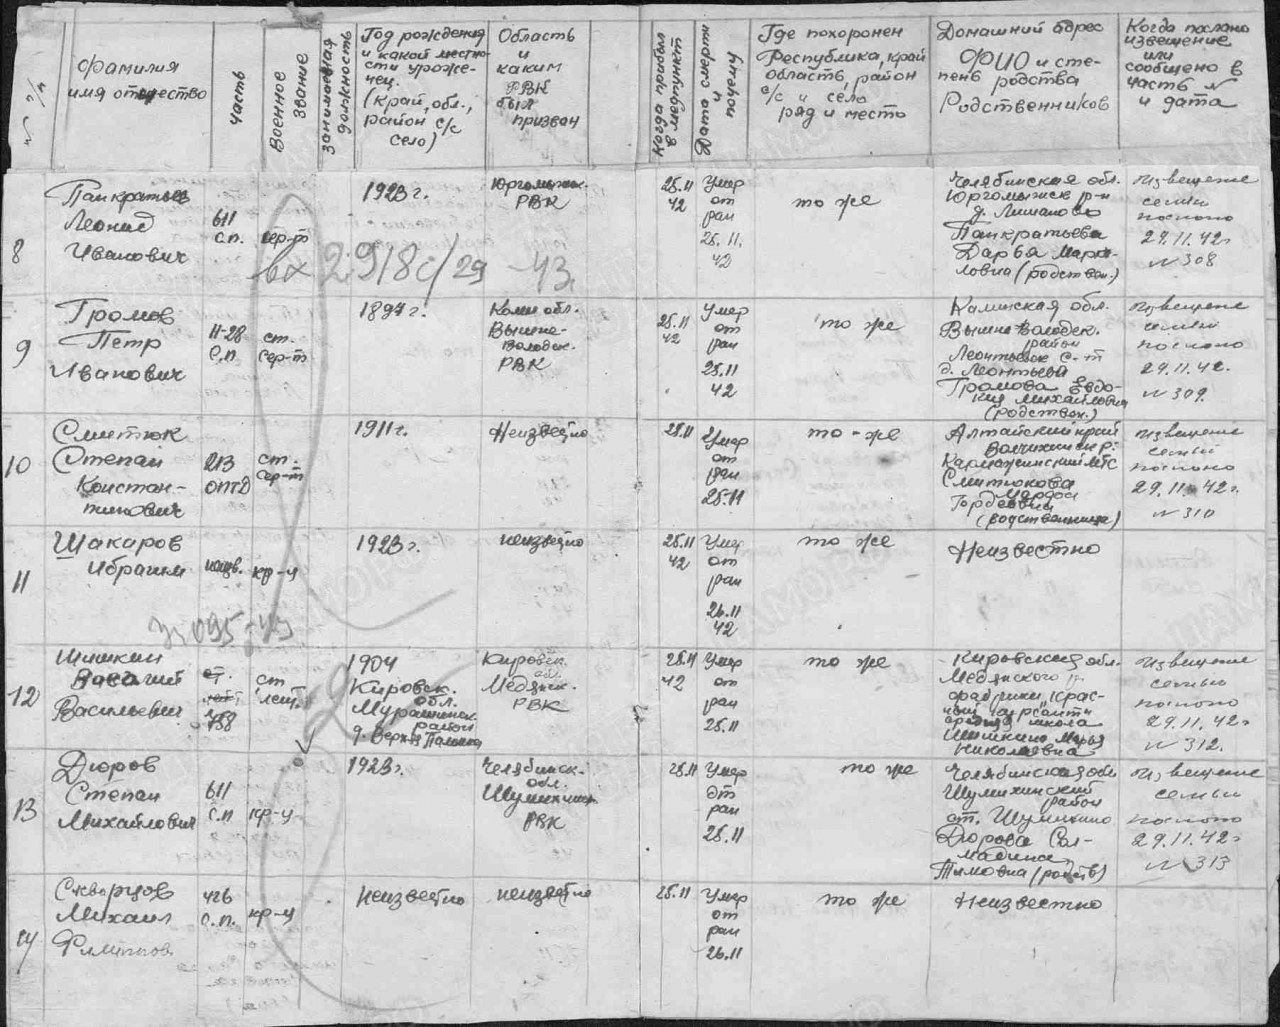 № п/п
Фамилия
имя отчество
часть
Военное
звание
занимаемая
должность
Год рождения
и какой местно-
сти уроже-
нец.
(край, обл.,
район с/с
село)
Область
и
каким
РВК
был
призван
Когда прибыл
в медпункт
Дата смерти
и
почему
Где похоронен
Республика, край
область, район
с/с и село
ряд и место
Домашний адрес
ФИО и сте-
пень родства
Родственников
Когда послано
извещение
или
сообщено в
часть №
и дата
8
Панкратьев
Леонид
Иванович
611
с.п.
сер-т
1923 г.
РВК
25.11
42
Умер
от
ран
25.11.
42
то же
Челябинская обл.
Юргомышск р-н
Панкратьева
Дарья
ловна (родствен.)
извещение
семьи
послано
29.11.42г
№ 308
вх 2918с/29 -43
9
Громов
Петр
Иванович
11-28
с.п.
ст.
сер-т
1897 г.
Калин обл.
Вышне-
Володск.
РВК
25.11
42
Умер
от
ран
25.11
42
то же
Калинская обл.
Вышне Володск.
район
Леонтьевск с-т
д. Леонтьево
Громова Евдо-
кия Михайловна
(родствен.)
извещение
семьи
послано
29.11.42.
№ 309.
10
Смитюк
Степан
Констан-
тинович
213
ОПТД
ст.
сер-т
1911 г.
Неизвестно
25.11
Умер
от
ран
25.11
то-же
Алтайский край
Волчихин р.
МТС
Смитюкова
Марфа
Гордеевна
(родственница)
извещение
семьи
послано
29.11.42г.
№ 310
11
Шакиров
Ибрагим
неизв.
кр-ц
1923 г.
неизвестно
25.11
42
Умер
от
ран
26.11
42
то же
Неизвестно
12
Шишкин
Василий
Васильевич
758
ст
лейт.
1904
Кировск.
обл.
Мурашинск.
район
Кировск.
обл.
Медянск.
РВК
25.11
42
Умер
от
ран
25.11
то же
Кировская обл.
Медянского р
фабрики "Крас-
школа
Шишкина Марья
Николаевна
извещение
семью
послано
29.11.42г
№ 312.
13
Дюров
Степан
Михайлович
611
с.п
кр-ц
1923 г.
Челябинск-
обл.
Шумихинск
РВК
25.11
Умер
от
ран
25.11
то же
Челябинская обл
Шумихинский
район
ст. Шумихино
Дюрова
(родств)
извещение
семьи
послано
29.11.42г
№ 313
14
Скворцов
Михаил
426
с.п.
кр-ц
Неизвестно
неизвестно
25.11
Умер
от
ран
26.11
то же
Неизвестно